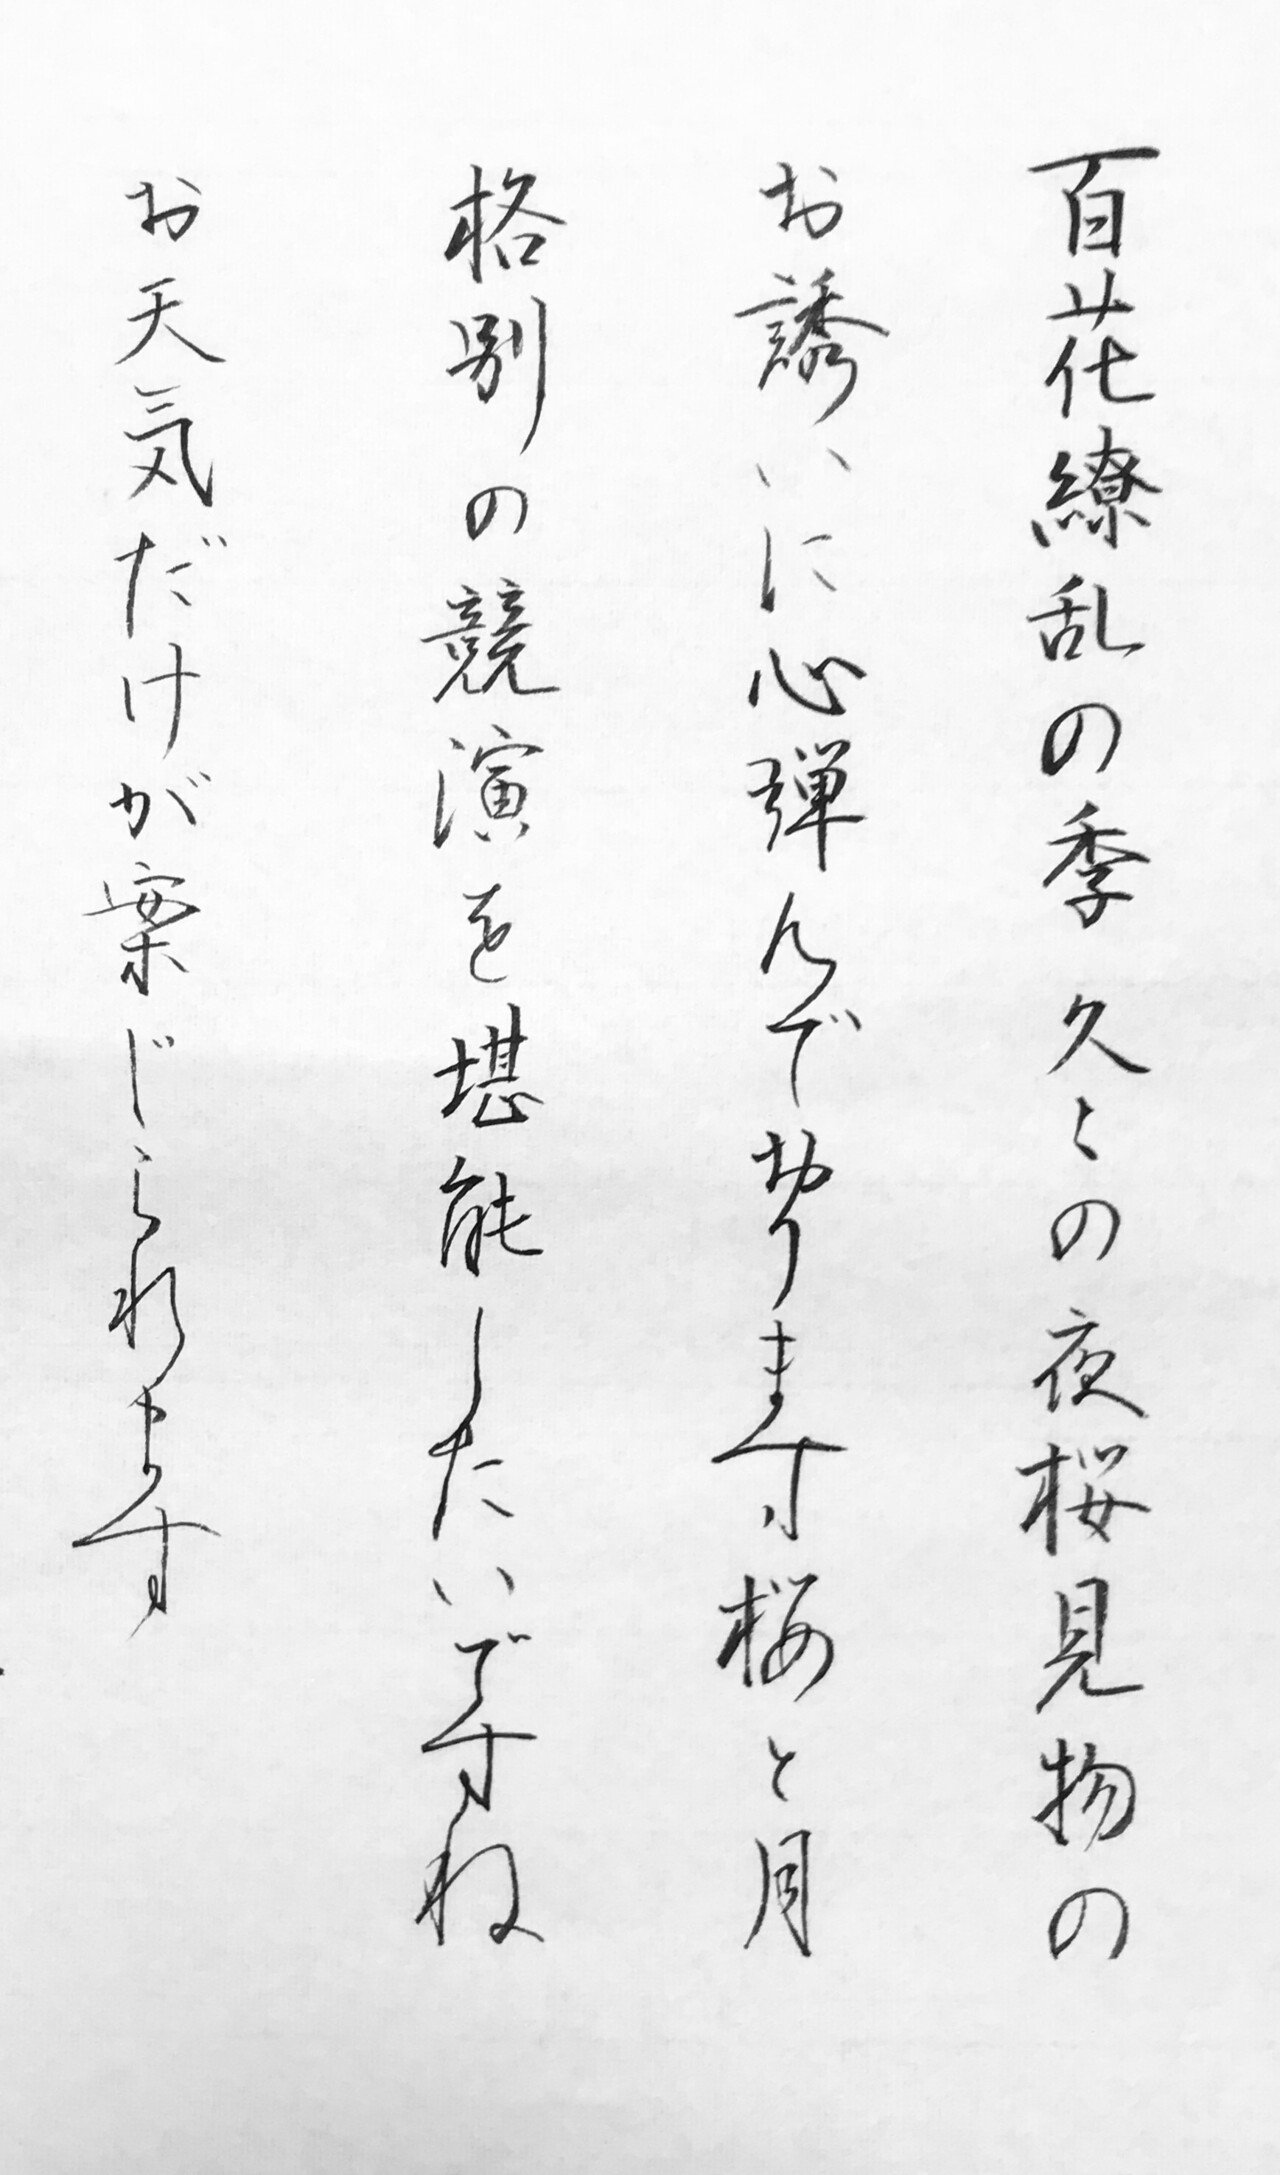 百花繚乱の季久々の夜桜見物の
お誘いに心弾んでおります桜と月
格別の競演を堪能したいですね
お天気だけが案じられます